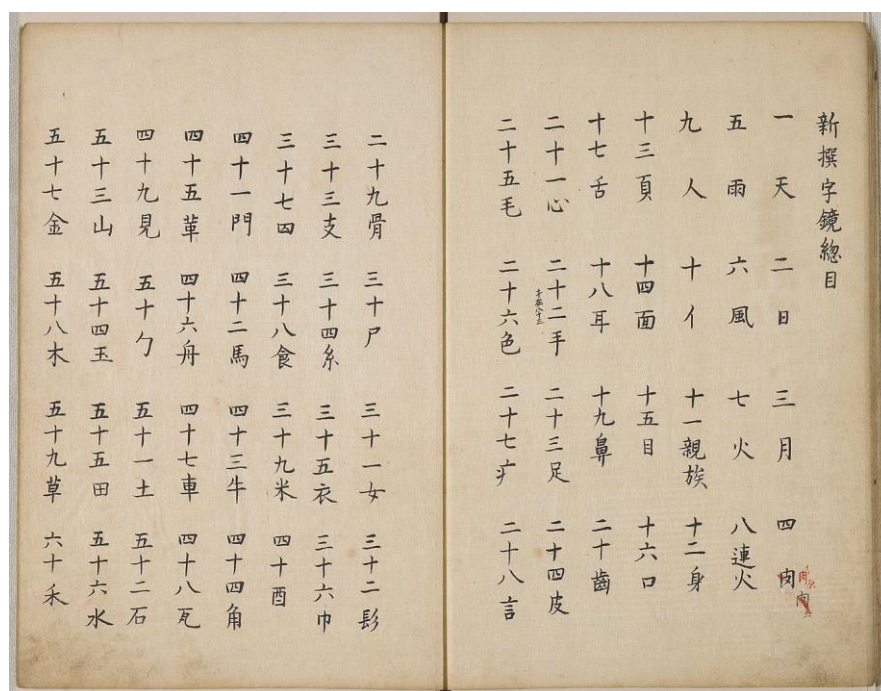 新撰字鏡緫目
一天 二日 三月 四肉
五雨 六風 七火 八連火
九人 十亻 十一親族 十二身
十三頁 十四面 十五目 十六口
十七舌 十八耳 十九鼻 二十齒
二十一心 二十二手 二十三足 二十四皮
二十五毛 二十六色 二十七疒 二十八言
二十九骨 三十尸 三十一女 三十二髟
三十三支 三十四糸 三十五衣 三十六巾
三十七四 三十八食 三十九米 四十酉
四十一門 四十二馬 四十三牛 四十四角
四十五革 四十六舟 四十七車 四十八瓦
四十九見 五十勹 五十一土 五十二石
五十三山 五十四玉 五十五田 五十六水
五十七金 五十八木 五十九草 六十禾